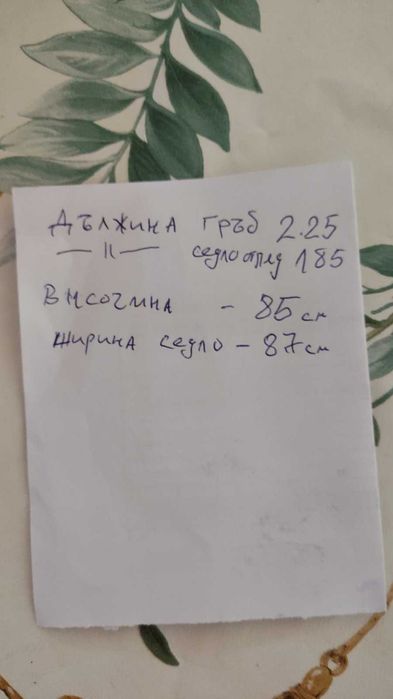 Дължина гръб 2.25
— 11 — седло отпред 185
Височина - 85 см
ширина седло - 87 см